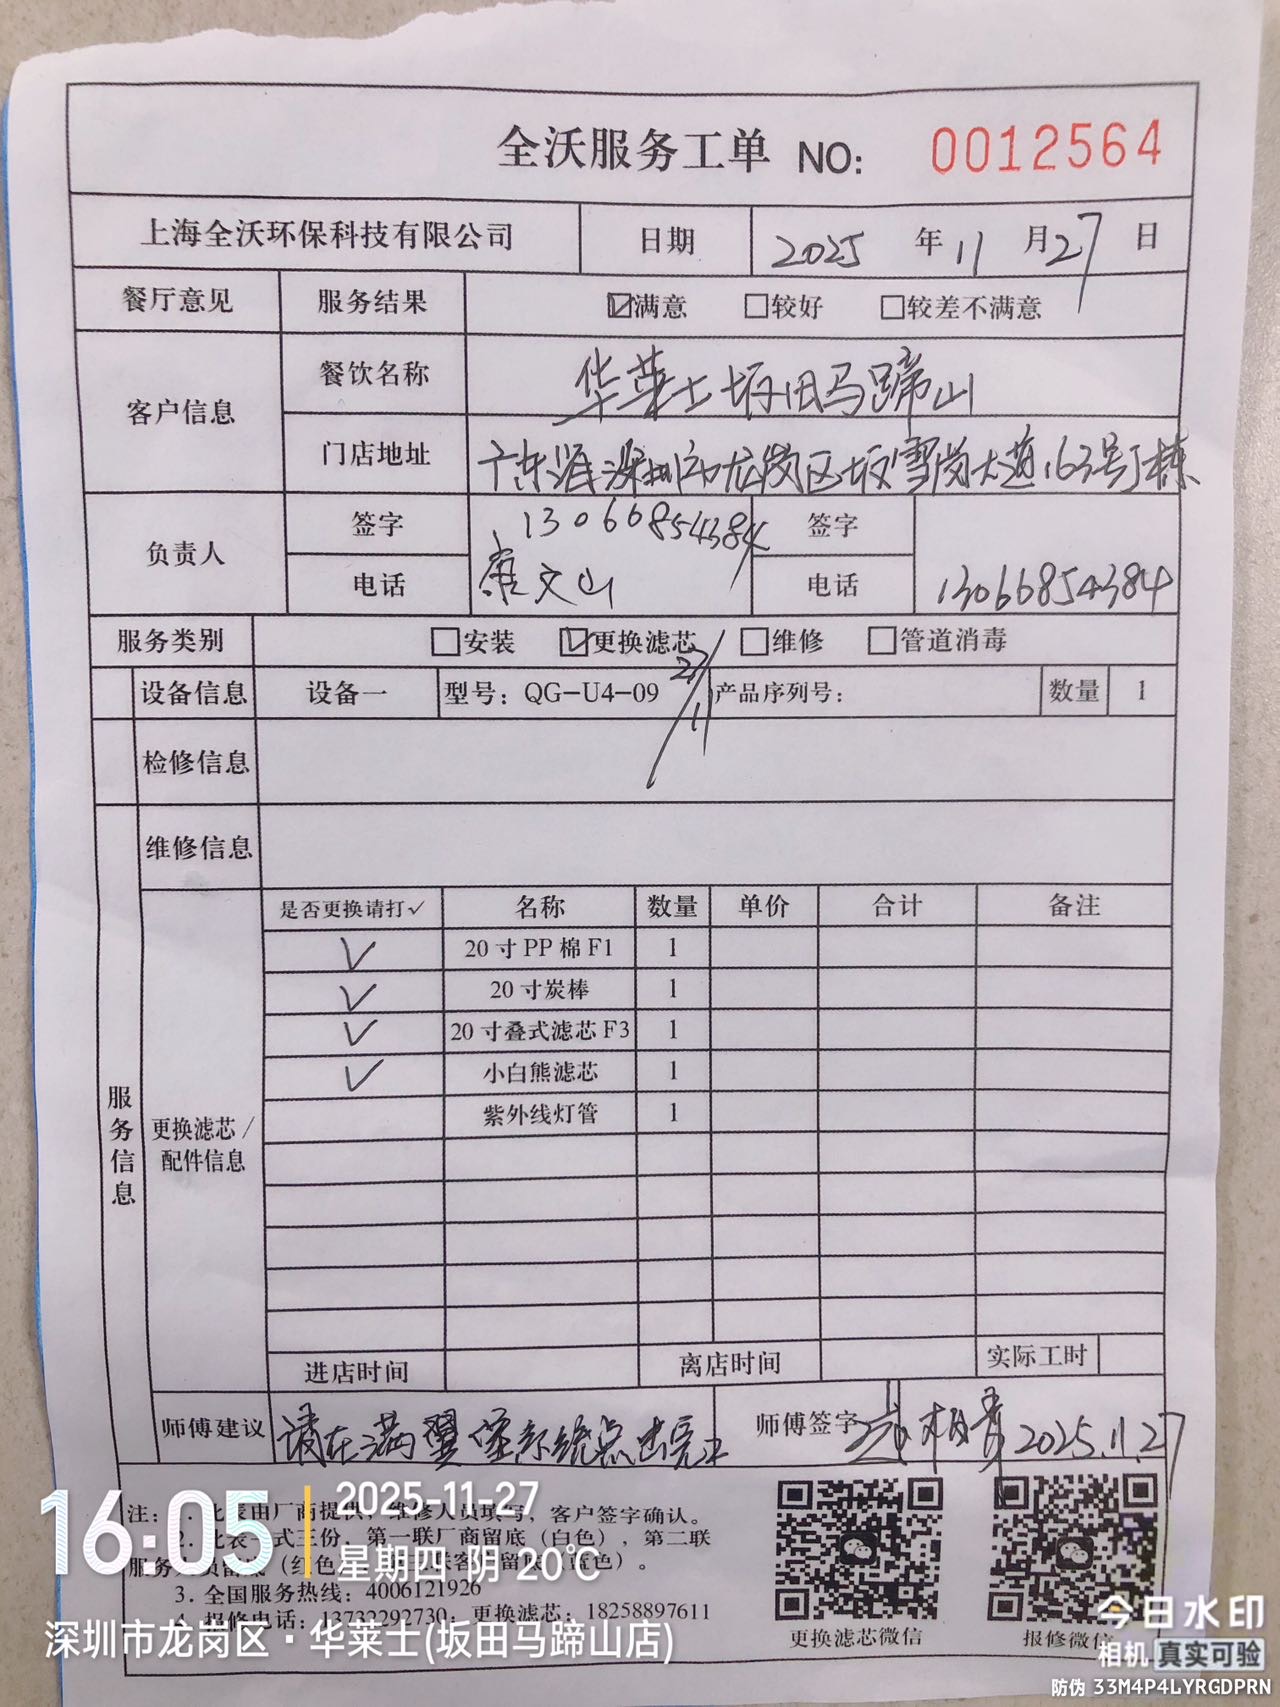 全沃服务工单 NO: 0012564
上海全沃环保科技有限公司 日期 2025 年 11 月 27 日
餐厅意见 服务结果 ☑满意 □较好 □较差不满意
客户信息 餐饮名称 华莱士坂田马蹄山
门店地址 广东 深圳市龙岗区坂 雪岗大道163号 栋
负责人 签字 13066854384 签字
电话 文山 电话 13066854384
服务类别 □安装 ☑更换滤芯 □维修 □管道消毒
27/11
设备信息 设备一 型号：QG-U4-09 产品序列号： 数量 1
检修信息
维修信息
服务信息
更换滤芯/
配件信息
是否更换请打✓ 名称 数量 单价 合计 备注
✓ 20寸PP棉F1 1
✓ 20寸炭棒 1
✓ 20寸叠式滤芯F3 1
✓ 小白熊滤芯 1
紫外线灯管 1
进店时间 离店时间 实际工时
师傅建议 请在满 系统点击 师傅签字 2025.11.27
注：1. 此表由厂商提供，维修人员填写，客户签字确认。
2. 此表一式三份，第一联厂商留底（白色），第二联
服务 员留底（红色 联客 留底（蓝色）。
3. 全国服务热线：4006121926
4. 报修电话：13732292730；更换滤芯：18258897611
更换滤芯微信 报修微信
16:05 2025-11-27
星期四 阴 20℃
深圳市龙岗区·华莱士(坂田马蹄山店)
今日水印
相机 真实可验
防伪 33M4P4LYRGDPRN